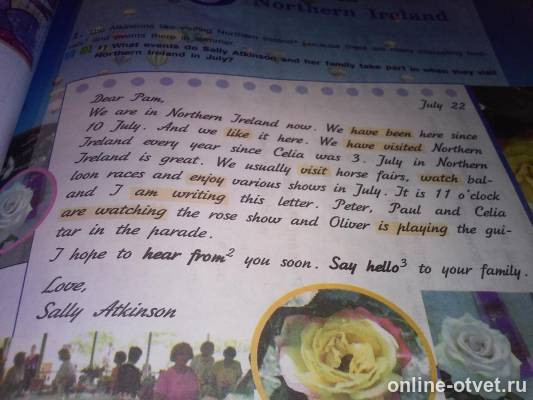 Northern Ireland
1. Did Atkinsons like visiting Northern Ireland? Because there are many interesting festi-
vals and events there in summer.
2) What events do Sally Atkinson and her family take part in when they visit
Northern Ireland in July?
Dear Pam,
July 22
We are in Northern Ireland now. We have been here since
10 July. And we like it here. We have visited Northern
Ireland every year since Celia was 3. July in Northern
Ireland is great. We usually visit horse fairs, watch bal-
loon races and enjoy various shows in July. It is 11 o'clock
and I am writing this letter. Peter, Paul and Celia
are watching the rose show and Oliver is playing the gui-
tar in the parade.
I hope to hear from² you soon. Say hello³ to your family.
Love,
Sally Atkinson
online-otvet.ru